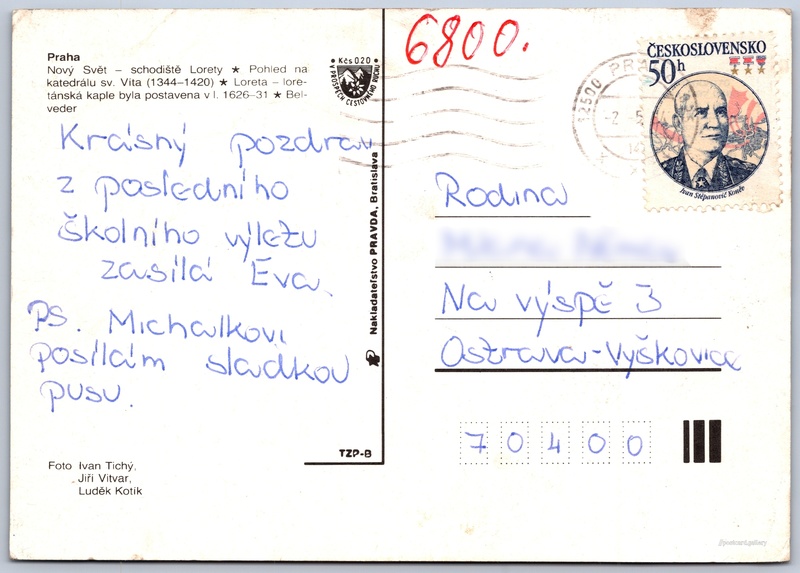 Praha
Nový Svět – schodiště Lorety ★ Pohled na
katedrálu sv. Víta (1344–1420) ★ Loreta – lore-
tánská kaple byla postavena v l. 1626–31 ★ Bel-
veder
Kčs 020
V PROSPĚCH CESTOVNÍHO RUCHU
6800.
12500 PR
-2.-5.
ČESKOSLOVENSKO
50h
Ivan Stěpanovič Koněv
Krásný pozdrav
z posledního
školního výletu
zasílá Eva.
PS. Michalkovi
posílám sladkou
pusu.
Nakladatelství PRAVDA, Bratislava
Rodina
Na výspě 3
Ostrava-Vyškovice
70400
TZP-B
Foto Ivan Tichý,
Jiří Vitvar,
Luděk Kotik
//postcard.gallery